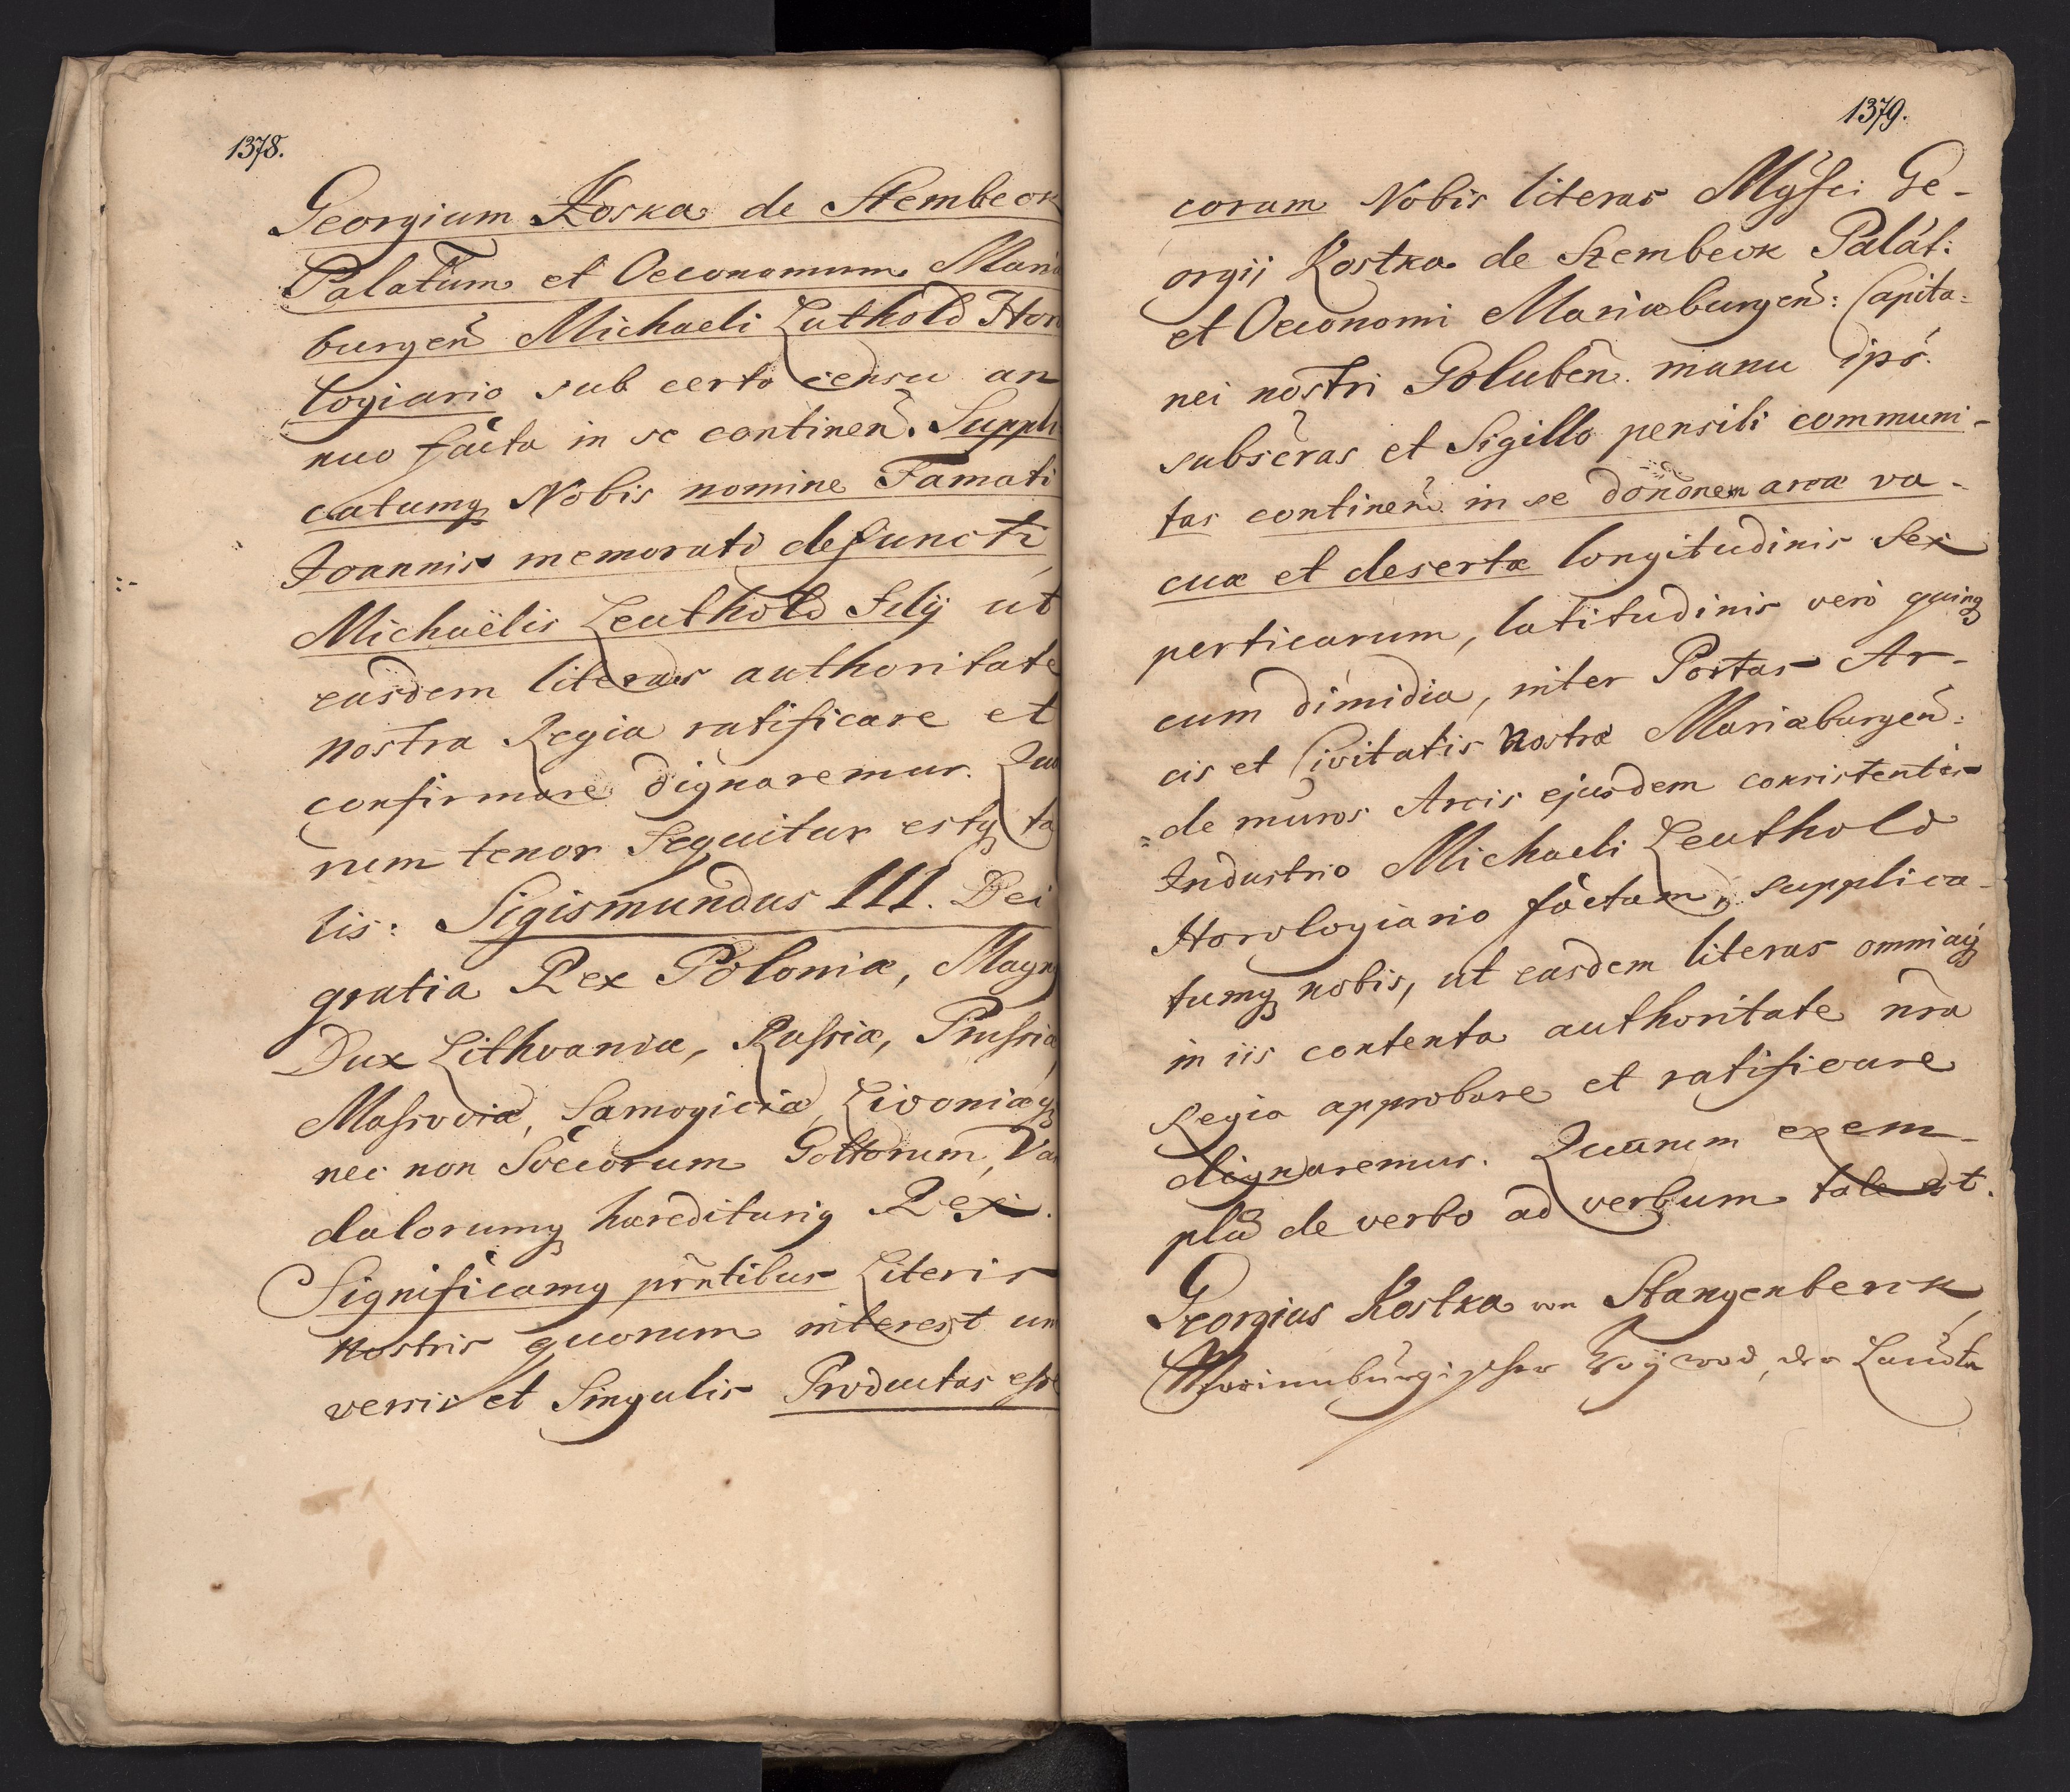 1378.
Georgium Koska de Stembeck
Palatūm et Oeconomum Mariæ
burgeñ Michaeli Luthold Horo
logiario sub certo censu an
nuo facta in se contineñ. Suppli
catumq Nobis nomine Famati
Joannis memorati defuncti
Michaëlis Leuthold Filij ut
easdem literas authoritate
nostra Regia ratificare et
confirmare dignaremur. Qua
rum tenor sequitur estq ta
lis: Sigismundus III. Dei
gratia Rex Poloniæ, Magng
Dux Lithvaniæ, Russiæ, Prussiæ,
Masoviæ, Samogiciæ, Livoniæq
nec non Svecorum Gottorum, Van
dalorumq hæreditarig Rex.
Significamg pñtibus Literis
Nostris quorum interest uni
versis et Singulis Productas esse
1379.
corum Nobis literas Mgfci Ge-
orgij Kostka de Sztembeck Palát:
et Oeconomi Mariæburgeñ: Capita-
nei nostri Goluben̄. manu ips.
subscras et Sigillo pensili communi-
tas contineñ in se donōnem areæ va-
cuæ et desertæ longitudinis sex
perticarum, latitudinis verò quinq
cum dimidia, inter Portas Ar-
cis et Civitatis Nostræ Mariæburgeñ:
de muros Arcis ejusdem consistentes
Industrio Michaeli Leuthold
Horologiario factam, supplica-
tumq nobis, ut easdem literas omniaq
in iis contenta authoritate nr̄a
Regia approbare et ratificare
dignaremur. Quarum exem-
plũ de verbo ad verbum tale est.
Georgius Kostka von Stangenberck,
Marienburgischer Woÿwod, der Landte